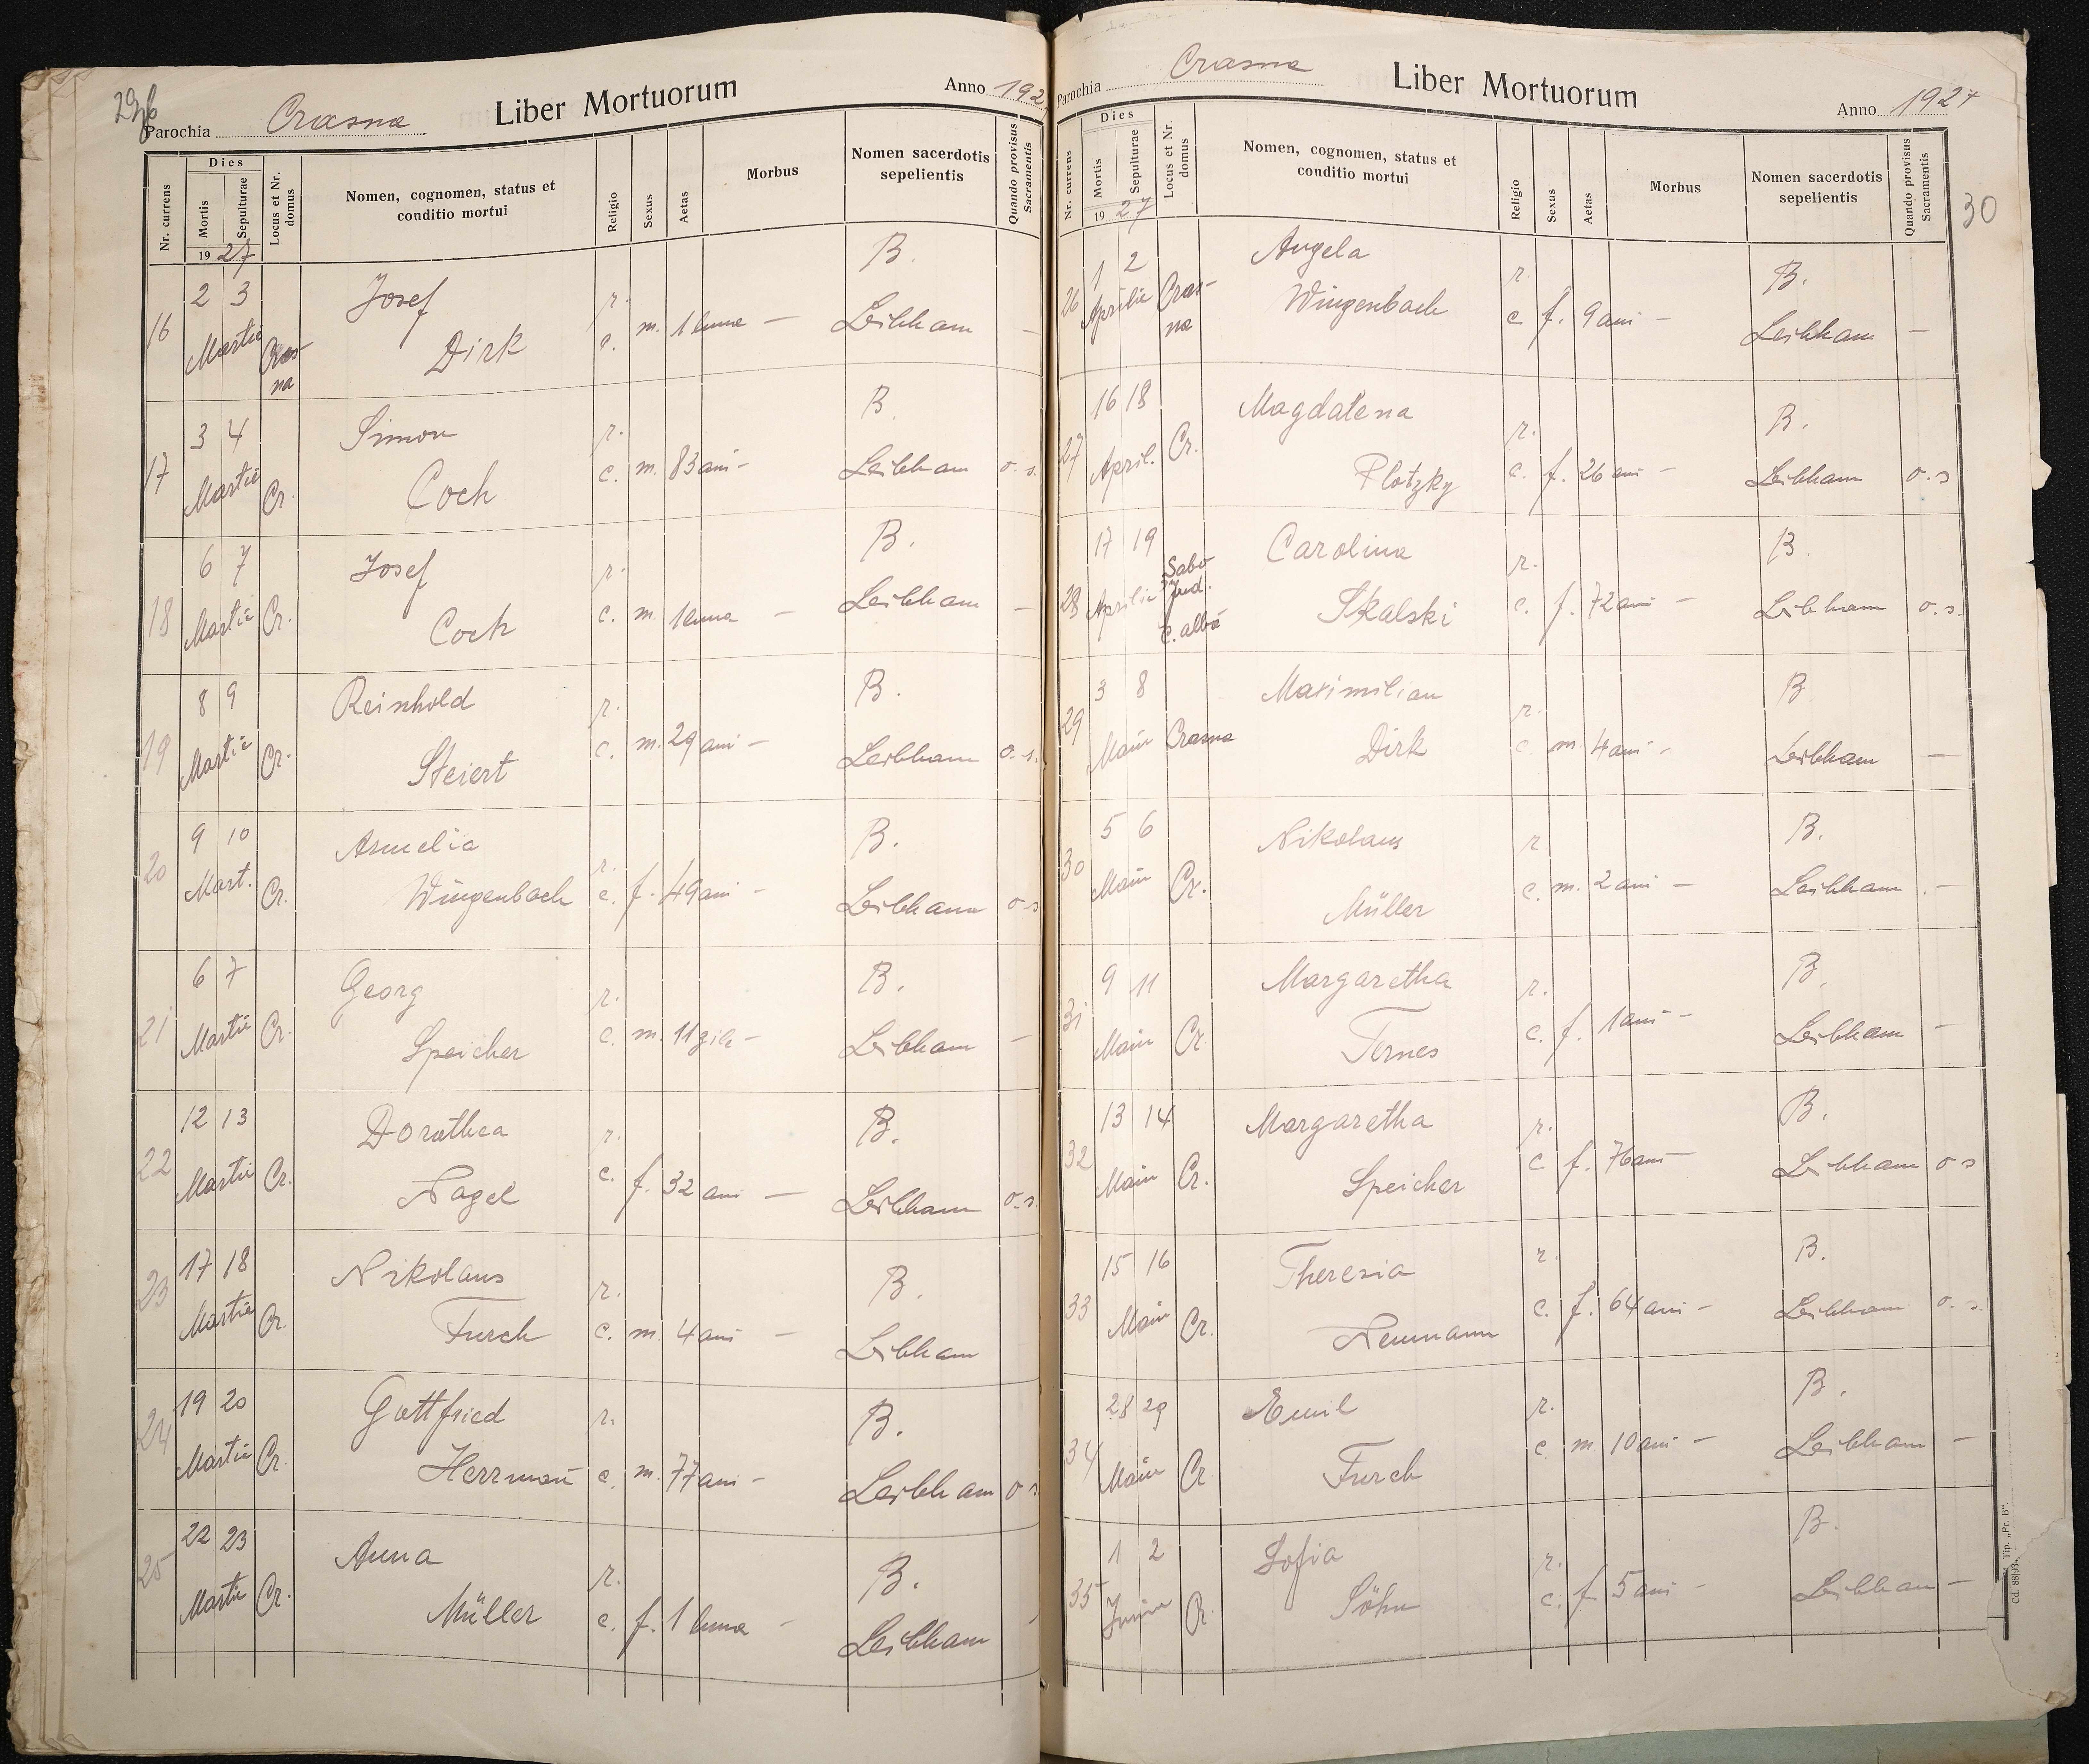 29b
Parochia Crasna Liber Mortuorum Anno 192
Nr. currens
Dies
Mortis
Sepulturae
19 27
Locus et Nr. domus
Nomen, cognomen, status et
conditio mortui
Religio
Sexus
Aetas
Morbus
Nomen sacerdotis
sepelientis
Quando provisus
Sacramentis
16 2 3 Martie Cras-na Josef Dirk r. c. m. 1 luna — B. Leibham —
17 3 4 Martie Cr. Simon Coch r. c. m. 83 ani — B. Leibham o. s.
18 6 7 Martie Cr. Josef Coch r. c. m. 1 luna — B. Leibham —
19 8 9 Martie Cr. Reinhold Steiert r. c. m. 29 ani — B. Leibham o. s.
20 9 10 Mart. Cr. Amelia Wingenbach r. c. f. 49 ani — B. Leibham o s
21 6 7 Martie Cr. Georg Speicher r. c. m. 11 zile — B. Leibham —
22 12 13 Martie Cr. Dorothea Nagel r. c. f. 32 ani — B. Leibham o. s.
23 17 18 Martie Cr. Nikolaus Furch r. c. m. 4 ani — B. Leibham
24 19 20 Martie Cr. Gottfried Herrman̄ r. c. m. 77 ani — B. Leibham o s
25 22 23 Martie Cr. Anna Müller r. c. f. 1 luna — B. Leibham
Parochia Crasna Liber Mortuorum Anno 1927
30
Nr. currens
Dies
Mortis
Sepulturae
19 27
Locus et Nr. domus
Nomen, cognomen, status et
conditio mortui
Religio
Sexus
Aetas
Morbus
Nomen sacerdotis
sepelientis
Quando provisus
Sacramentis
26 1 2 Aprilie Cras-na Angela Wingenbach r. c f. 9 ani — B. Leibham —
27 16 18 April. Cr. Magdalena Plotzky r. c. f. 26 ani — B. Leibham o. s
28 17 19 Aprilie Jud. C. albă Carolina Skalski r. c. f. 72 ani — B. Leibham o. s.
29 3 8 Main Crasna Maximilian Dirk r. c. m 4 ani - B Leibham —
30 5 6 Main Cr. Nikolaus Müller r c. m. 2 ani — B. Leibham —
31 9 11 Main Cr. Margaretha Ternes r. c. f. 1 ani — B. Leibham —
32 13 14 Main Cr. Margaretha Speicher r. c f. 76 ani — B. Leibham o s
33 15 16 Main Cr. Theresia Neumann r. c. f. 64 ani — B. Leibham o. s.
34 28 29 Main Cr Emil Furch r. c m. 10 ani — B. Leibham —
35 1 2 Junie Cr. Sofia Söhn r. c. f 5 ani — B. Leibham —
Cd. 8893. Tip. „Pr. B“.